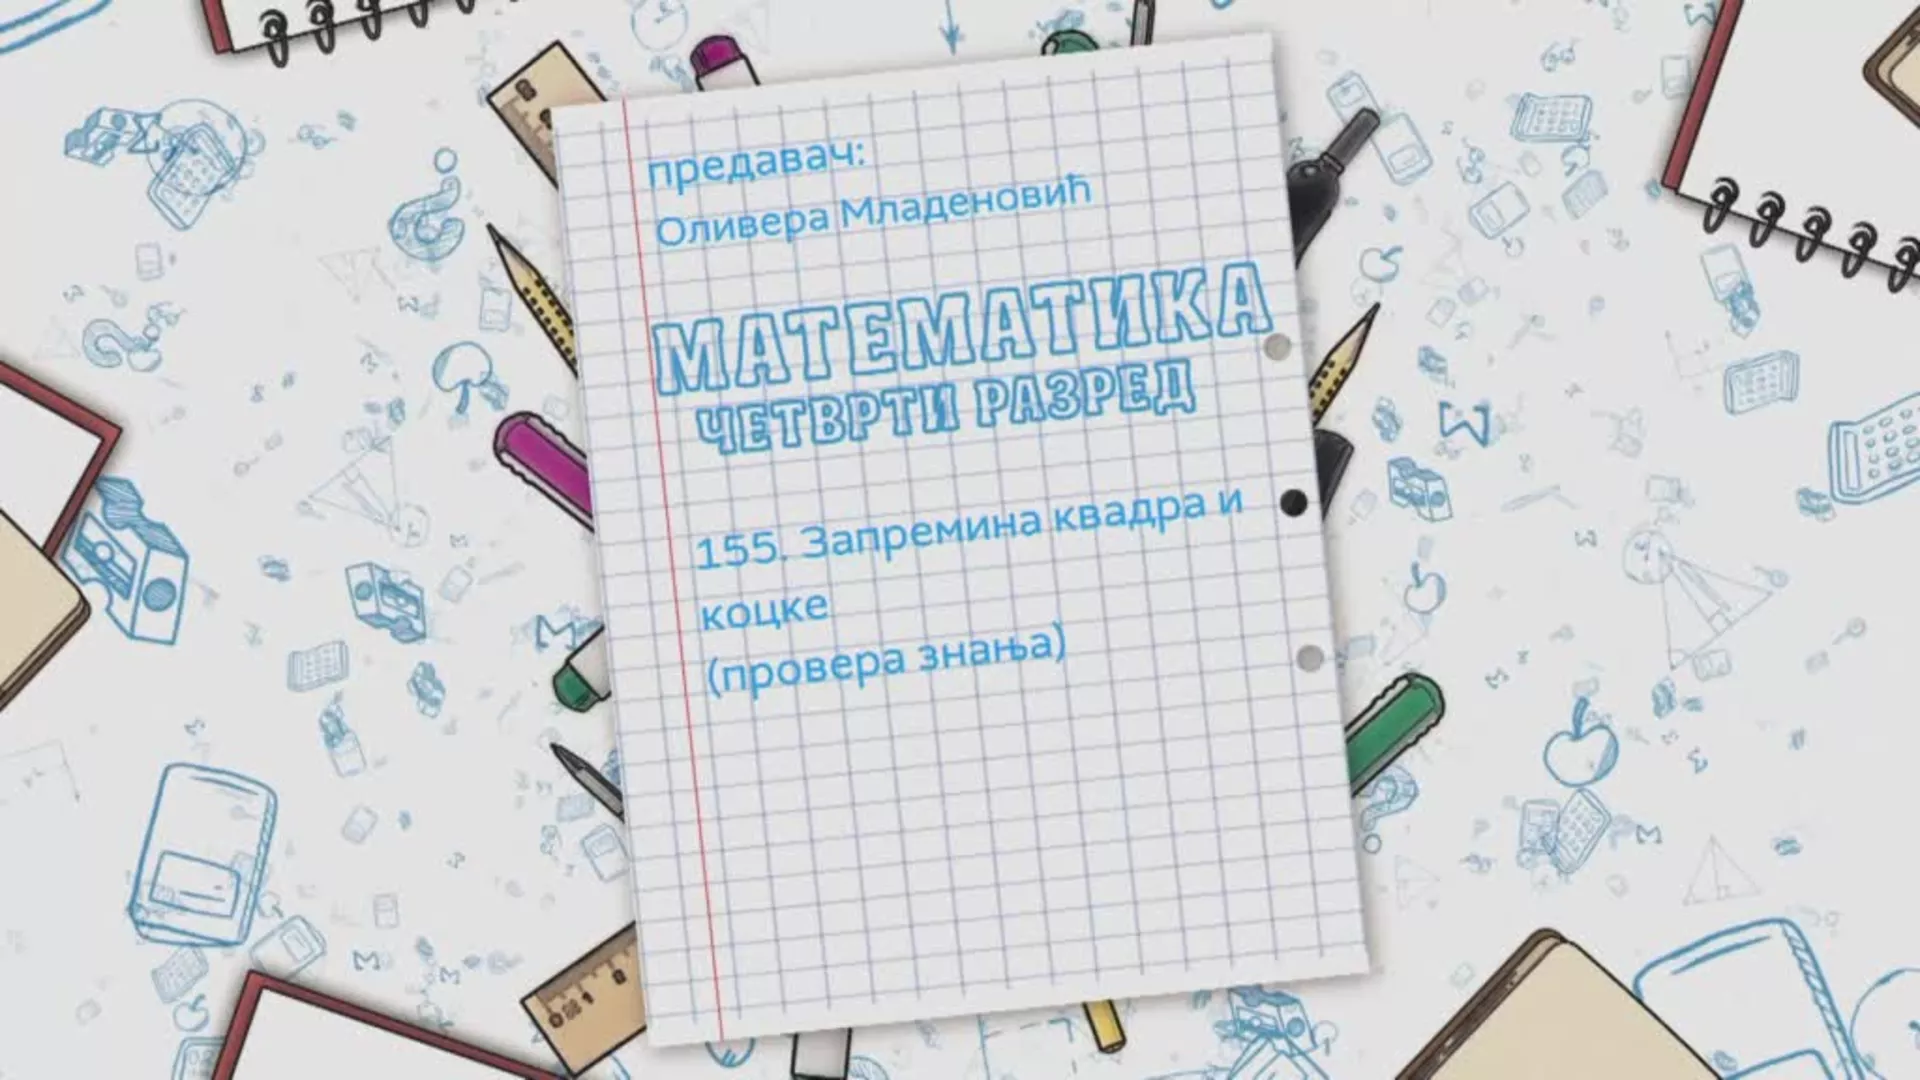 предавач:
Оливера Младеновић
МАТЕМАТИКА
ЧЕТВРТИ РАЗРЕД
155. Запремина квадра и
коцке
(провера знања)